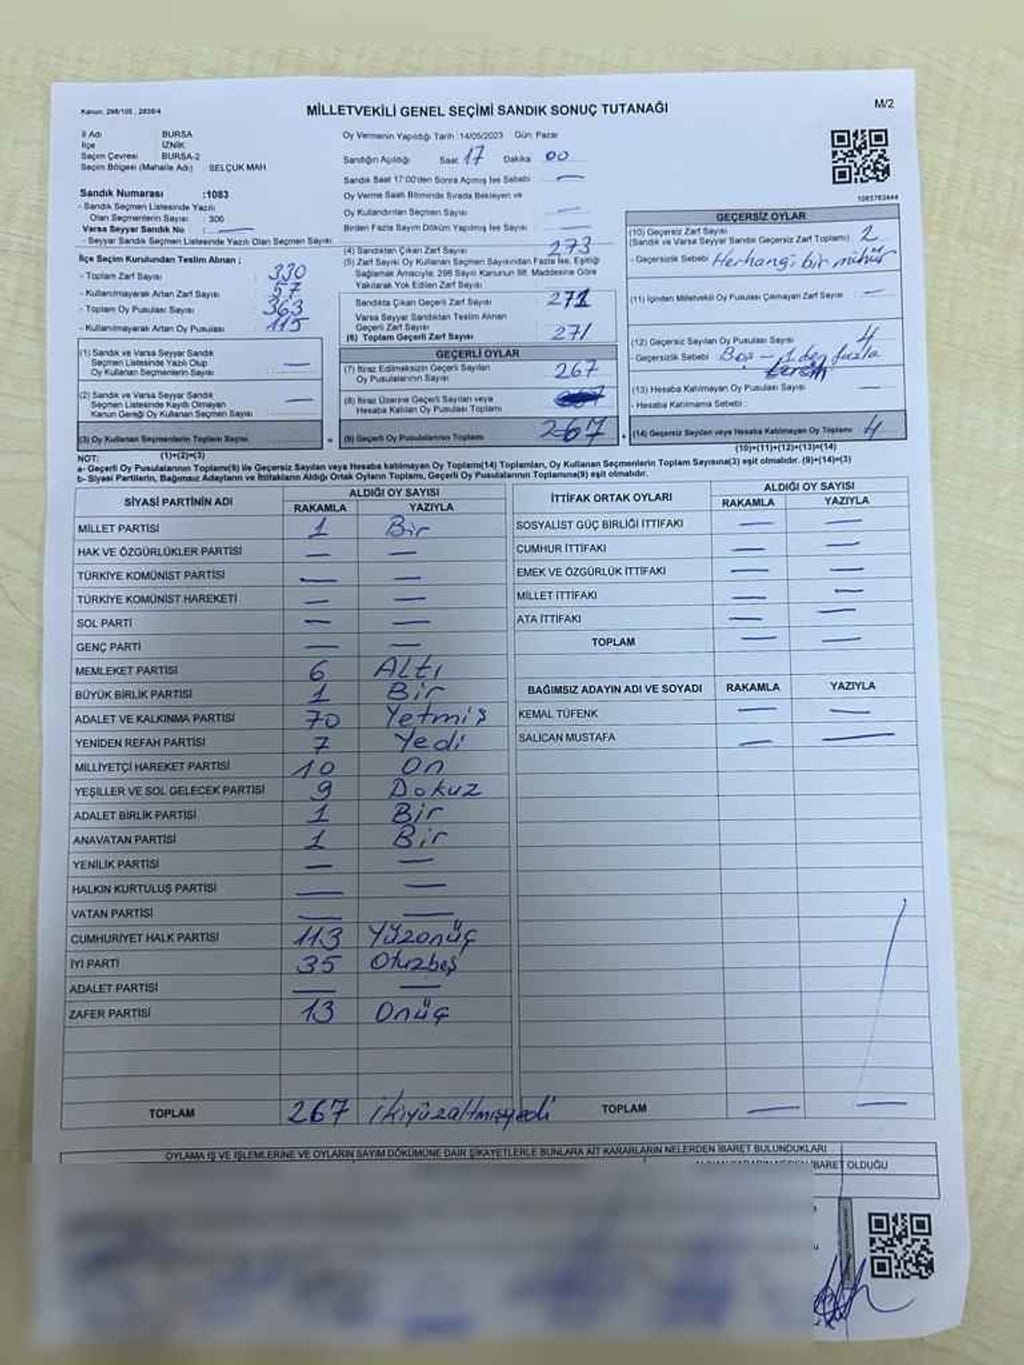 Kanun: 298/105 , 2839/4
MİLLETVEKİLİ GENEL SEÇİMİ SANDIK SONUÇ TUTANAĞI
M/2
İl Adı : BURSA
İlçe : İZNİK
Seçim Çevresi : BURSA-2
Seçim Bölgesi (Mahalle Adı) : SELÇUK MAH
Oy Vermenin Yapıldığı Tarih :14/05/2023 Gün: Pazar
Sandığın Açıldığı Saat 17 Dakika 00
Sandık Saat 17:00'den Sonra Açılmış İse Sebebi —
Oy Verme Saati Bitiminde Sırada Bekleyen ve
Oy Kullandırılan Seçmen Sayısı —
Birden Fazla Sayım Döküm Yapılmış İse Sayısı —
1083763444
Sandık Numarası :1083
- Sandık Seçmen Listesinde Yazılı
Olan Seçmenlerin Sayısı : 306
Varsa Seyyar Sandık No : —
- Seyyar Sandık Seçmen Listesinde Yazılı Olan Seçmen Sayısı:
İlçe Seçim Kurulundan Teslim Alınan ;
- Toplam Zarf Sayısı : 330
- Kullanılmayarak Artan Zarf Sayısı : 57
- Toplam Oy Pusulası Sayısı : 363
- Kullanılmayarak Artan Oy Pusulası : 115
(1) Sandık ve Varsa Seyyar Sandık
Seçmen Listesinde Yazılı Olup
Oy Kullanan Seçmenlerin Sayısı —
(2) Sandık ve Varsa Seyyar Sandık
Seçmen Listesinde Kayıtlı Olmayan
Kanun Gereği Oy Kullanan Seçmen Sayısı —
(3) Oy Kullanan Seçmenlerin Toplam Sayısı
(1)+(2)=(3)
(4) Sandıktan Çıkan Zarf Sayısı 273
(5) Zarf Sayısı Oy Kullanan Seçmen Sayısından Fazla İse, Eşitliği
Sağlamak Amacıyla, 298 Sayılı Kanunun 98. Maddesine Göre
Yakılarak Yok Edilen Zarf Sayısı —
Sandıkta Çıkan Geçerli Zarf Sayısı 271
Varsa Seyyar Sandıktan Teslim Alınan
Geçerli Zarf Sayısı
(6) Toplam Geçerli Zarf Sayısı 271
GEÇERLİ OYLAR
(7) İtiraz Edilmeksizin Geçerli Sayılan
Oy Pusulalarının Sayısı 267
(8) İtiraz Üzerine Geçerli Sayılan veya
Hesaba Katılan Oy Pusulası Toplamı
= (9) Geçerli Oy Pusulalarının Toplamı 267
GEÇERSİZ OYLAR
(10) Geçersiz Zarf Sayısı 2
(Sandık ve Varsa Seyyar Sandık Geçersiz Zarf Toplamı)
- Geçersizlik Sebebi : Herhangi bir mühür
(11) İçinden Milletvekili Oy Pusulası Çıkmayan Zarf Sayısı —
(12) Geçersiz Sayılan Oy Pusulası Sayısı 4
- Geçersizlik Sebebi : Boş - 1 den fazla
(13) Hesaba Katılmayan Oy Pusulası Sayısı —
- Hesaba Katılmama Sebebi :
+ (14) Geçersiz Sayılan veya Hesaba Katılmayan Oy Toplamı 4
(10)+(11)+(12)+(13)=(14)
NOT:
a- Geçerli Oy Pusulalarının Toplamı(9) ile Geçersiz Sayılan veya Hesaba katılmayan Oy Toplamı(14) Toplamları, Oy Kullanan Seçmenlerin Toplam Sayısına(3) eşit olmalıdır. (9)+(14)=(3)
b- Siyasi Partilerin, Bağımsız Adayların ve İttifakların Aldığı Oyların Toplamı, Geçerli Oy Pusulalarının Toplamına(9) eşit olmalıdır.
SİYASİ PARTİNİN ADI ALDIĞI OY SAYISI
RAKAMLA YAZIYLA
MİLLET PARTİSİ 1 Bir
HAK VE ÖZGÜRLÜKLER PARTİSİ — —
TÜRKİYE KOMÜNİST PARTİSİ — —
TÜRKİYE KOMÜNİST HAREKETİ — —
SOL PARTİ — —
GENÇ PARTİ — —
MEMLEKET PARTİSİ 6 Altı
BÜYÜK BİRLİK PARTİSİ 1 Bir
ADALET VE KALKINMA PARTİSİ 70 Yetmiş
YENİDEN REFAH PARTİSİ 7 Yedi
MİLLİYETÇİ HAREKET PARTİSİ 10 On
YEŞİLLER VE SOL GELECEK PARTİSİ 9 Dokuz
ADALET BİRLİK PARTİSİ 1 Bir
ANAVATAN PARTİSİ 1 Bir
YENİLİK PARTİSİ — —
HALKIN KURTULUŞ PARTİSİ — —
VATAN PARTİSİ — —
CUMHURİYET HALK PARTİSİ 113 Yüzonüç
İYİ PARTİ 35 Otuzbeş
ADALET PARTİSİ — —
ZAFER PARTİSİ 13 Onüç
TOPLAM 267 ikiyüzaltmışyedi
İTTİFAK ORTAK OYLARI ALDIĞI OY SAYISI
RAKAMLA YAZIYLA
SOSYALİST GÜÇ BİRLİĞİ İTTİFAKI — —
CUMHUR İTTİFAKI — —
EMEK VE ÖZGÜRLÜK İTTİFAKI — —
MİLLET İTTİFAKI — —
ATA İTTİFAKI — —
TOPLAM — —
BAĞIMSIZ ADAYIN ADI VE SOYADI RAKAMLA YAZIYLA
KEMAL TÜFENK — —
SALİCAN MUSTAFA — —
TOPLAM — —
OYLAMA İŞ VE İŞLEMLERİNE VE OYLARIN SAYIM DÖKÜMÜNE DAİR ŞİKAYETLERLE BUNLARA AİT KARARLARIN NELERDEN İBARET BULUNDUKLARI
İBARET OLDUĞU